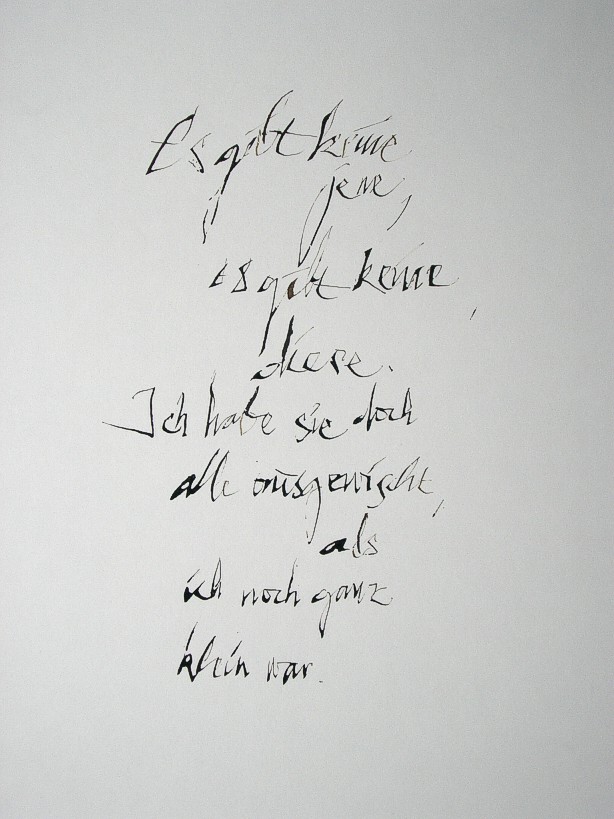 Es gibt keine
jene,
es gibt keine,
diese.
Ich habe sie doch
alle ausgewischt,
als
ich noch ganz
klein war.